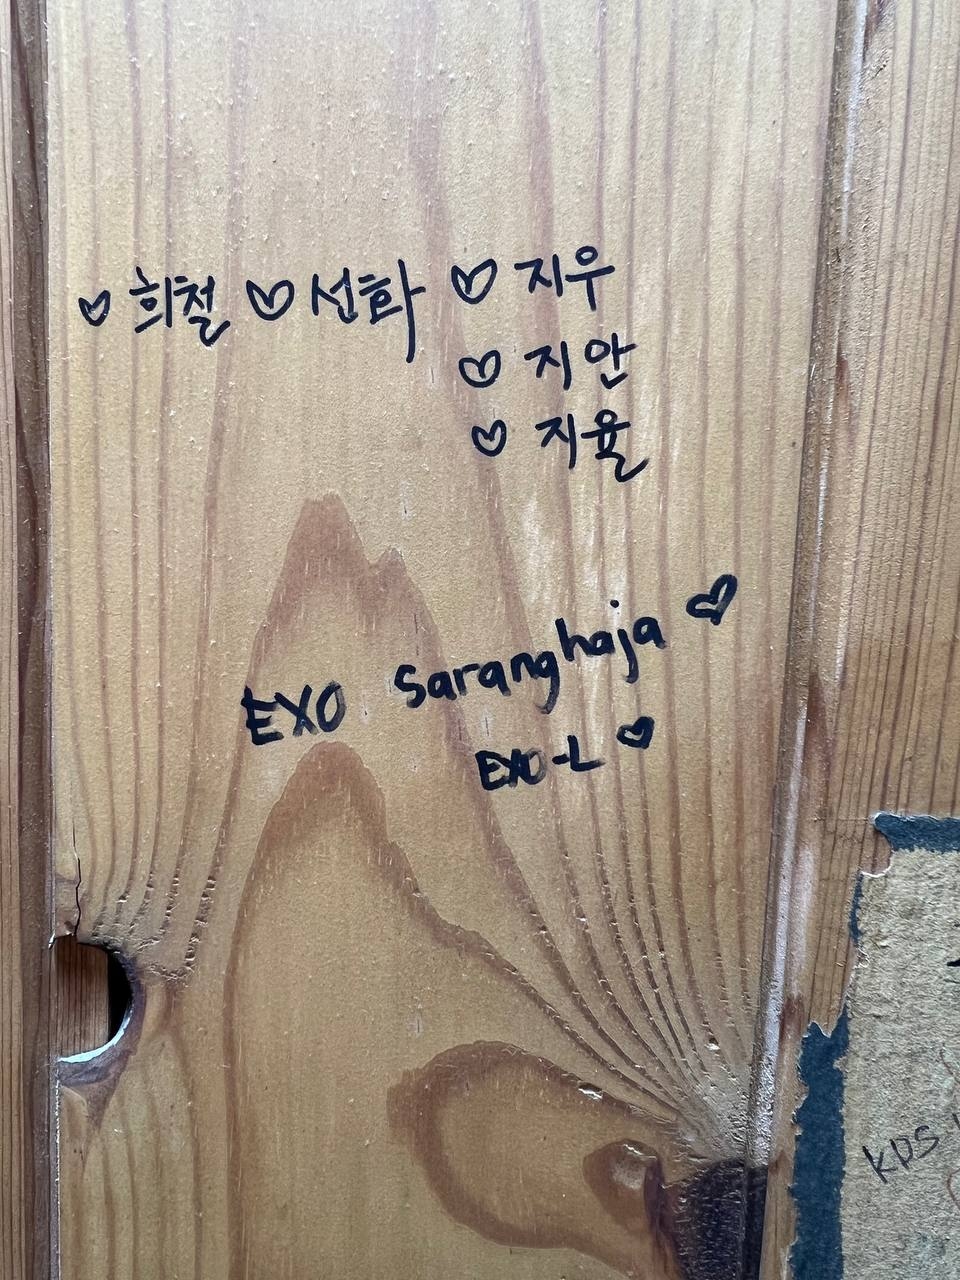 ♡ 희철 ♡ 선화 ♡ 지우
♡ 지안
♡ 지율
EXO Saranghaja ♡
EXO-L ♡
KDS